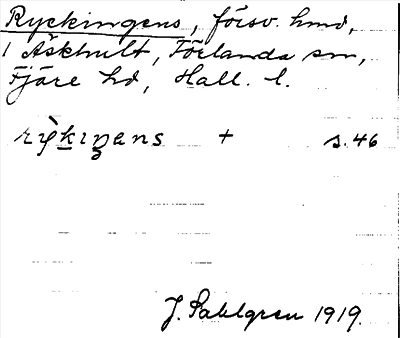 Ryckingens, försv. hmd,
i Åskhult, Förlanda sn,
Fjäre hd, Hall. l.
+ s. 46
J. Sahlgren 1919.